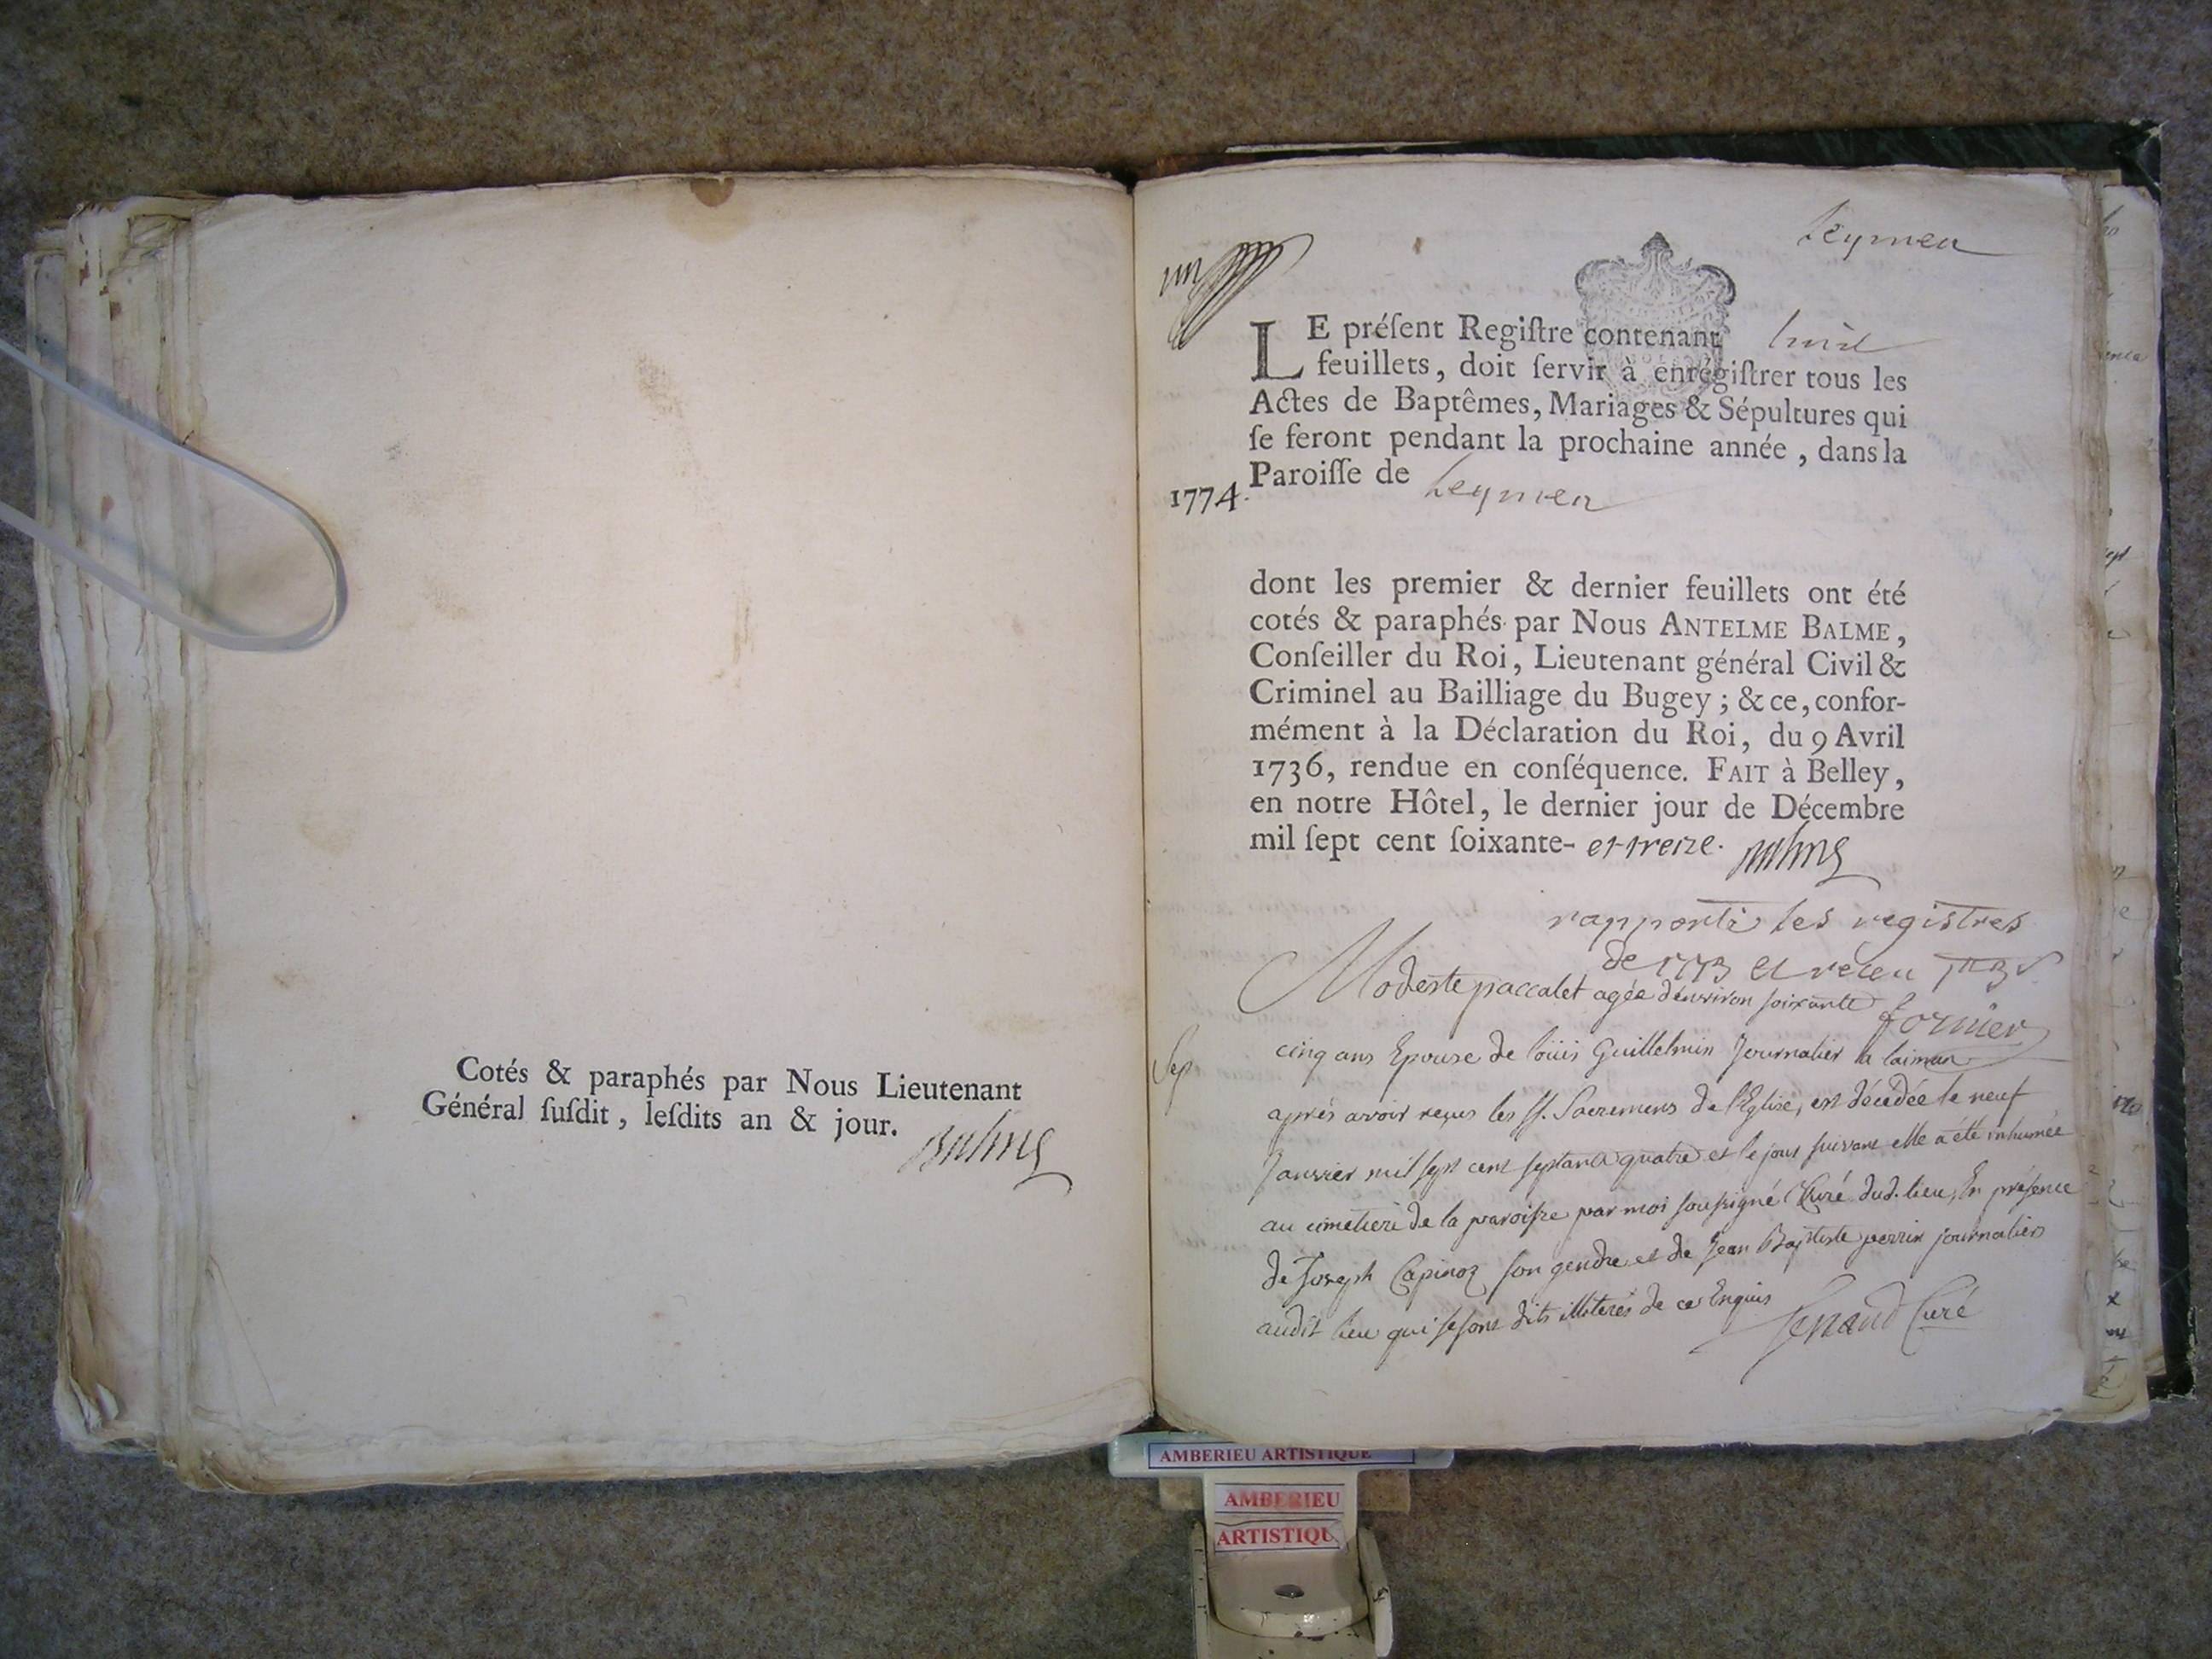 Cotés & paraphés par Nous Lieutenant
Général ſuſdit, leſdits an & jour.
Balme
Leymen
LE préſent Regiſtre contenant huit
feuillets, doit ſervir à enrégiſtrer tous les
Actes de Baptêmes, Mariages & Sépultures qui
ſe feront pendant la prochaine année, dans la
Paroiſſe de Leymen
1774.
dont les premier & dernier feuillets ont été
cotés & paraphés par Nous ANTELME BALME,
Conſeiller du Roi, Lieutenant général Civil &
Criminel au Bailliage du Bugey; & ce, confor-
mément à la Déclaration du Roi, du 9 Avril
1736, rendue en conſéquence. FAIT à Belley,
en notre Hôtel, le dernier jour de Décembre
mil ſept cent ſoixante- et treize. Balme
rapporté les registres
de 1773 et receu
fornier
Modeste paccalet agée d'environ soixante
Sep
cinq ans Epouse de loüis Guillelmin Journalier a laiman
après avoir reçus les SS. Sacremens de l'Eglise, est décédée le neuf
Janvier mil sept cent septante quatre et le jour suivant elle a été inhumée
au cimetiere de la paroisse par moi soussigné Curé dud. lieu, En présence
de Joseph Capinoz son gendre et de Jean Baptiste perrin journalier
audit lieu qui se sont dits illiterés de ce Enquis
Curé
AMBERIEU ARTISTIQUE
AMBERIEU
ARTISTIQU